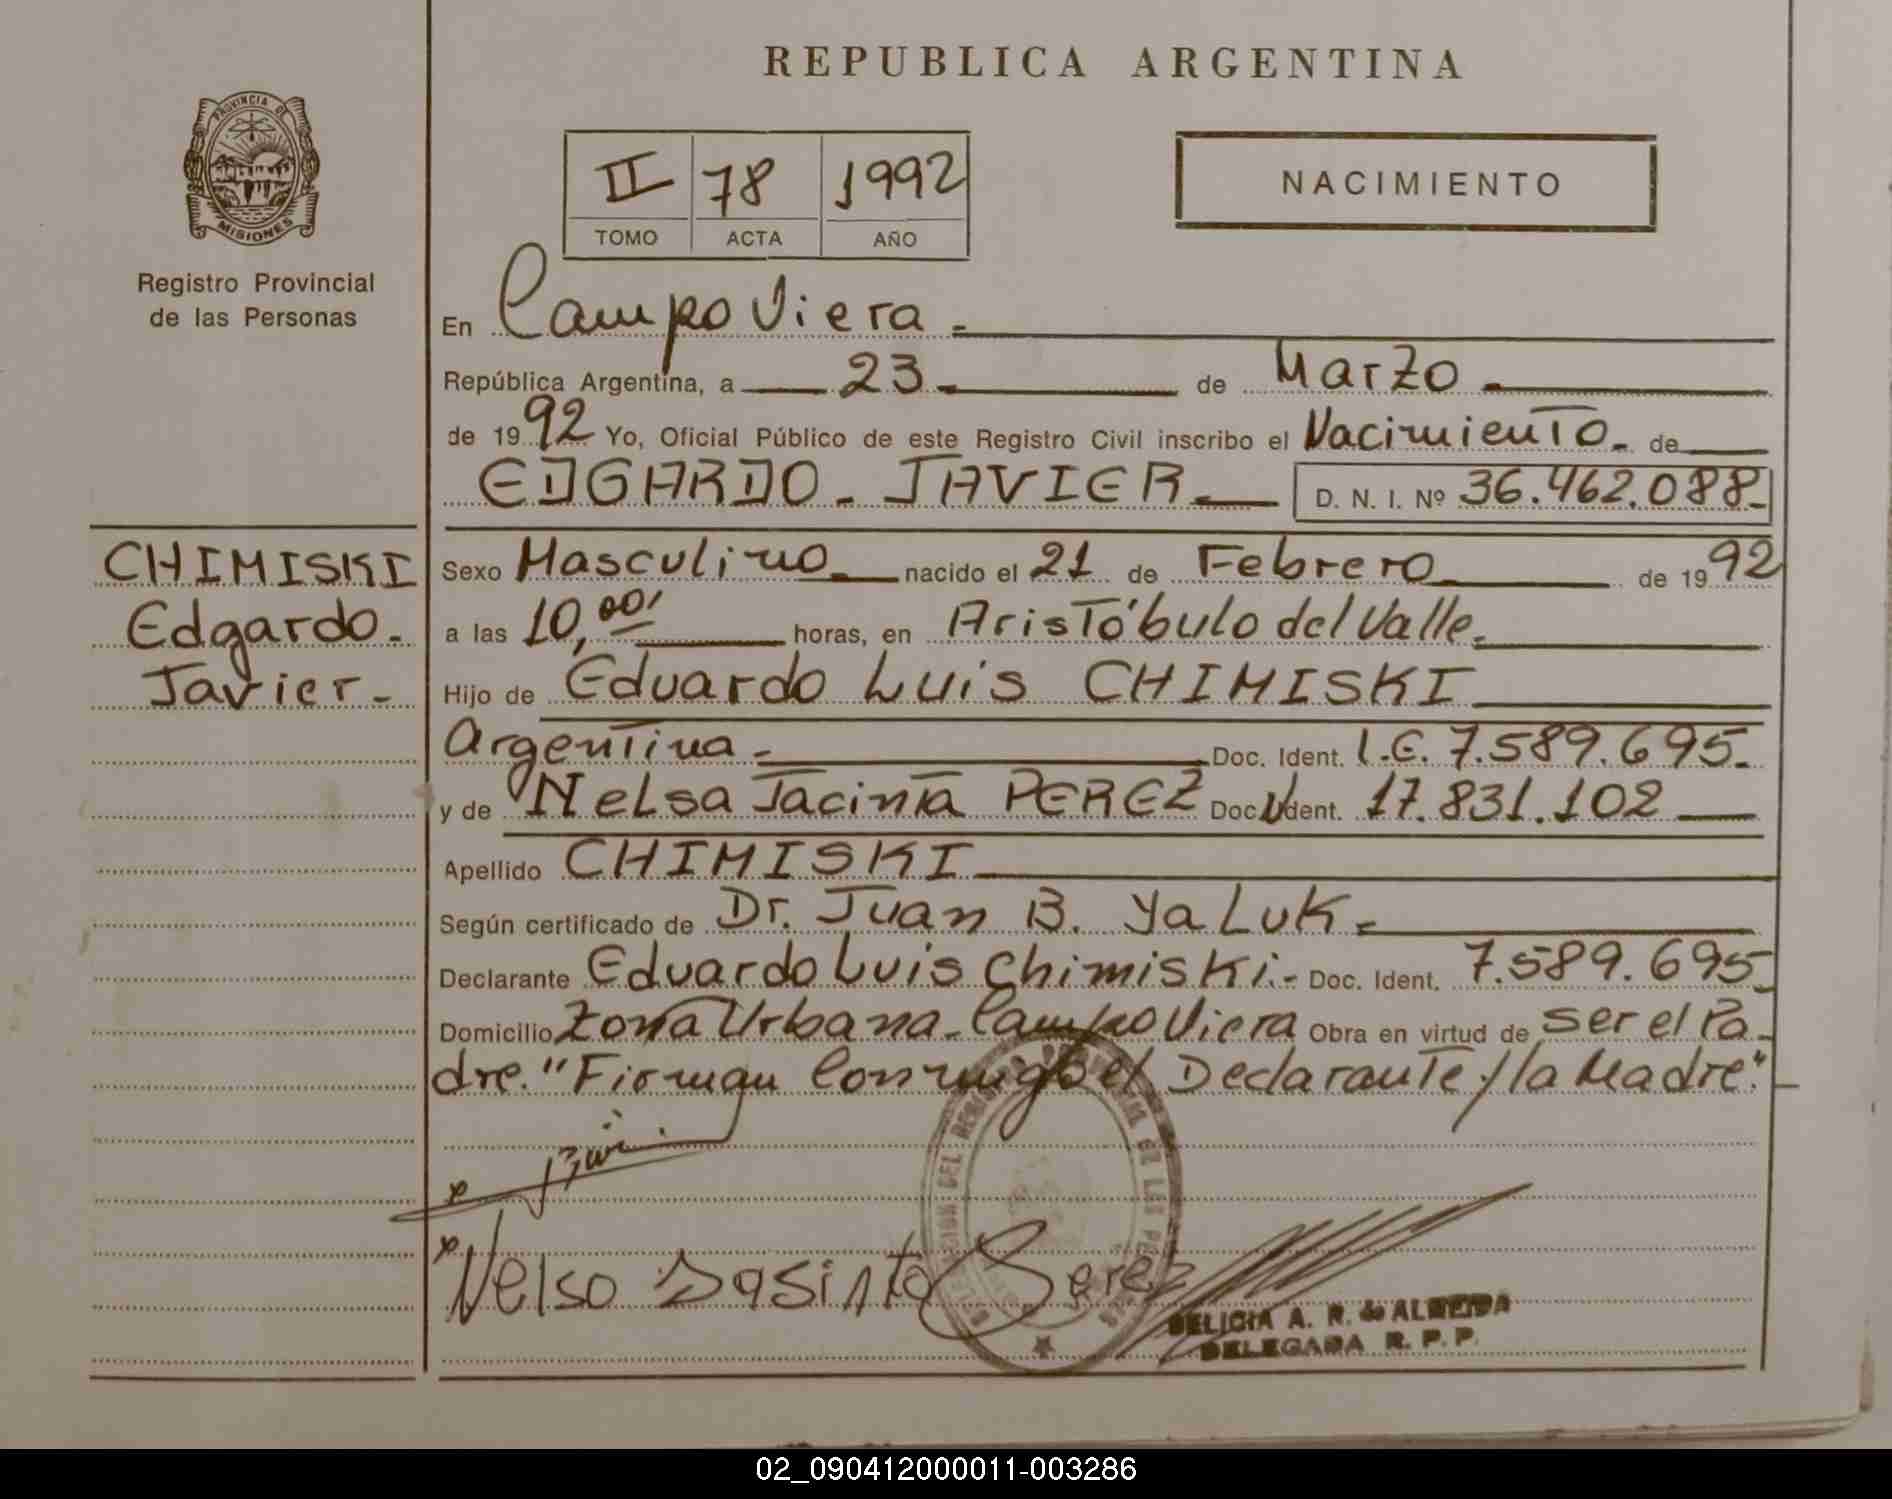 REPUBLICA ARGENTINA
PROVINCIA DE
MISIONES
Registro Provincial
de las Personas
II 78 1992
TOMO ACTA AÑO
NACIMIENTO
En Campo Viera.
República Argentina, a 23 de Marzo
de 1992 Yo, Oficial Público de este Registro Civil inscribo el Nacimiento de
EDGARDO JAVIER D. N. I. Nº 36.462.088
CHIMISKI
Edgardo
Javier
Sexo Masculino nacido el 21 de Febrero de 1992
a las 10,00 horas, en Aristóbulo del Valle.
Hijo de Eduardo Luis CHIMISKI
Argentina Doc. Ident. L.E. 7.589.695
y de Nelsa Jacinta PEREZ Doc. Ident. 17.831.102
Apellido CHIMISKI
Según certificado de Dr. Juan B. YaLuk.
Declarante Eduardo Luis Chimiski.- Doc. Ident. 7.589.695
Domicilio Zona Urbana-Campo Viera Obra en virtud de ser el Pa-
dre. "Firman Conmigo el Declarante y la Madre."
Nelso Jasinto Perez
DELICIA A. R. de ALMEIDA
DELEGADA R. P. P.
02_090412000011-003286